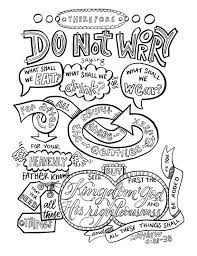 THEREFORE
DO NOT WORRY
saying
WHAT SHALL WE EAT?
WHAT SHALL WE drink?
WHAT SHALL WE WEAR?
For after all these
the gentiles
FOR YOUR
HEAVENLY
FATHER KNOWS
NEED
all these
THINGS
BUT SEEK FIRST THE
Kingdom of God
and His righteousness
and
ALL THESE THINGS SHALL
BE ADDED
YOU
MATTHEW